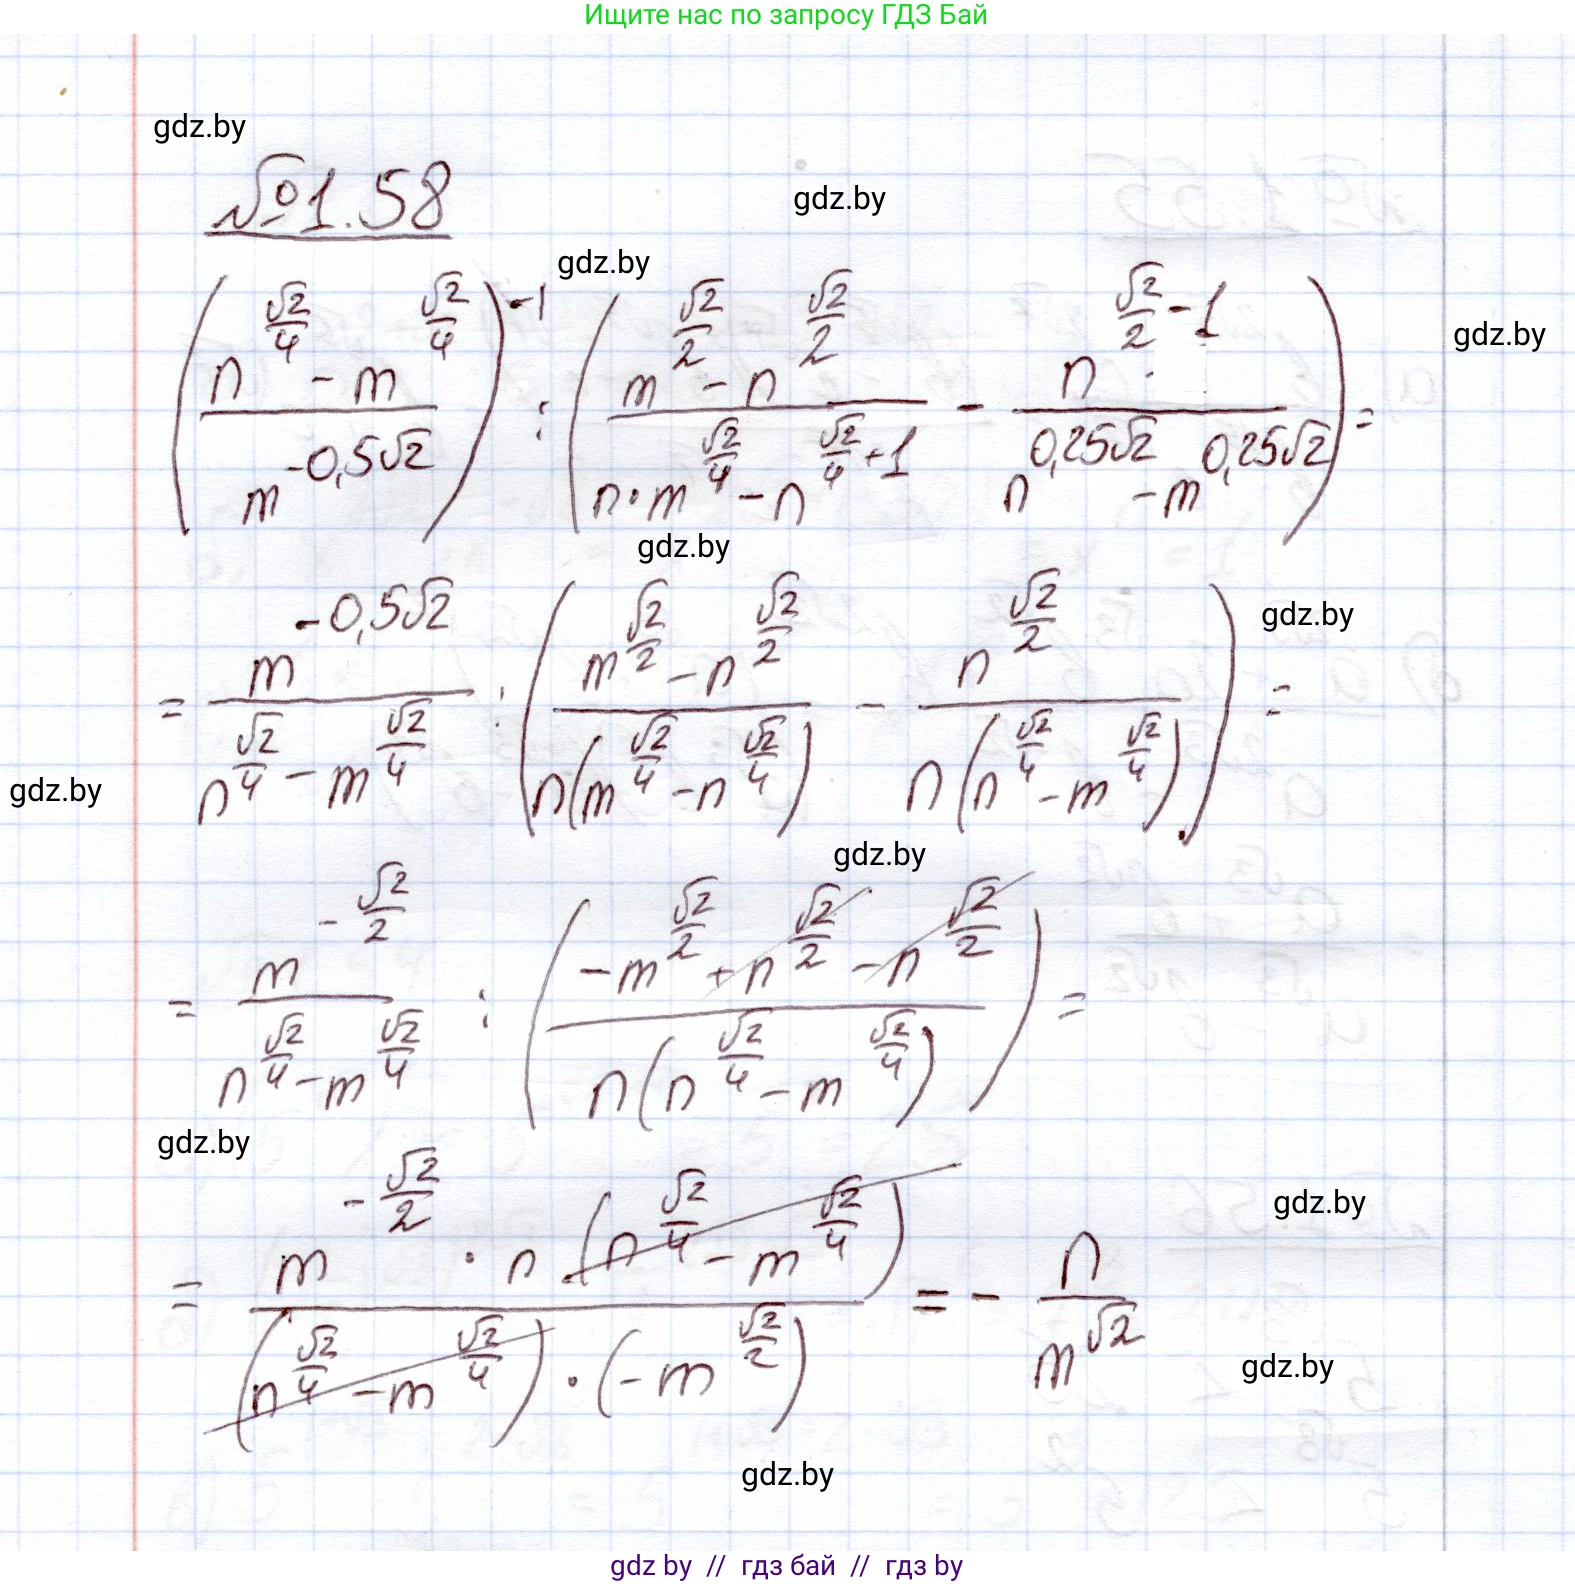 Ищите нас по запросу ГДЗ Бай
gdz.by
№1.58
gdz.by
gdz.by
(n^(√2/4) - m^(√2/4) / m^(-0,5√2))^(-1) : (m^(√2/2) - n^(√2/2) / n·m^(√2/4) - n^(√2/4+1) - n^(√2/2-1) / n^(0,25√2) - m^(0,25√2)) =
gdz.by
gdz.by
= m^(-0,5√2) / n^(√2/4) - m^(√2/4) : (m^(√2/2) - n^(√2/2) / n(m^(√2/4) - n^(√2/4)) - n^(√2/2) / n(n^(√2/4) - m^(√2/4))) =
gdz.by
gdz.by
gdz.by
= m^(-√2/2) / n^(√2/4) - m^(√2/4) : (-m^(√2/2) + n^(√2/2) - n^(√2/2) / n(n^(√2/4) - m^(√2/4))) =
gdz.by
gdz.by
= m^(-√2/2) · n(n^(√2/4) - m^(√2/4)) / (n^(√2/4) - m^(√2/4)) · (-m^(√2/2)) = - n / m^√2
gdz.by
gdz.by
gdz by // гдз бай // гдз by